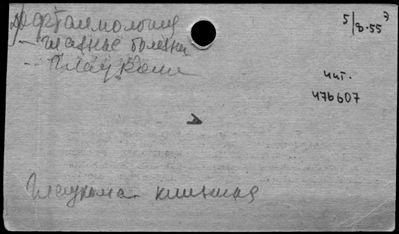 офтальмология
- глазные болезни
- глаукома
5/8-55 э
инг.
476607
Глаукома клиника